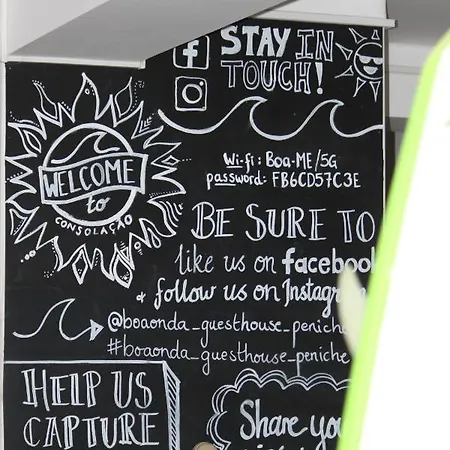 STAY IN
TOUCH!
WELCOME
to
CONSOLAÇÃO
Wi-fi: Boa-ME/5G
password: FB6CD57C3E
BE SURE TO
like us on facebook
& follow us on Instagram
@boaonda_guesthouse_peniche
#boaonda_guesthouse_peniche
HELP US
CAPTURE
Share you